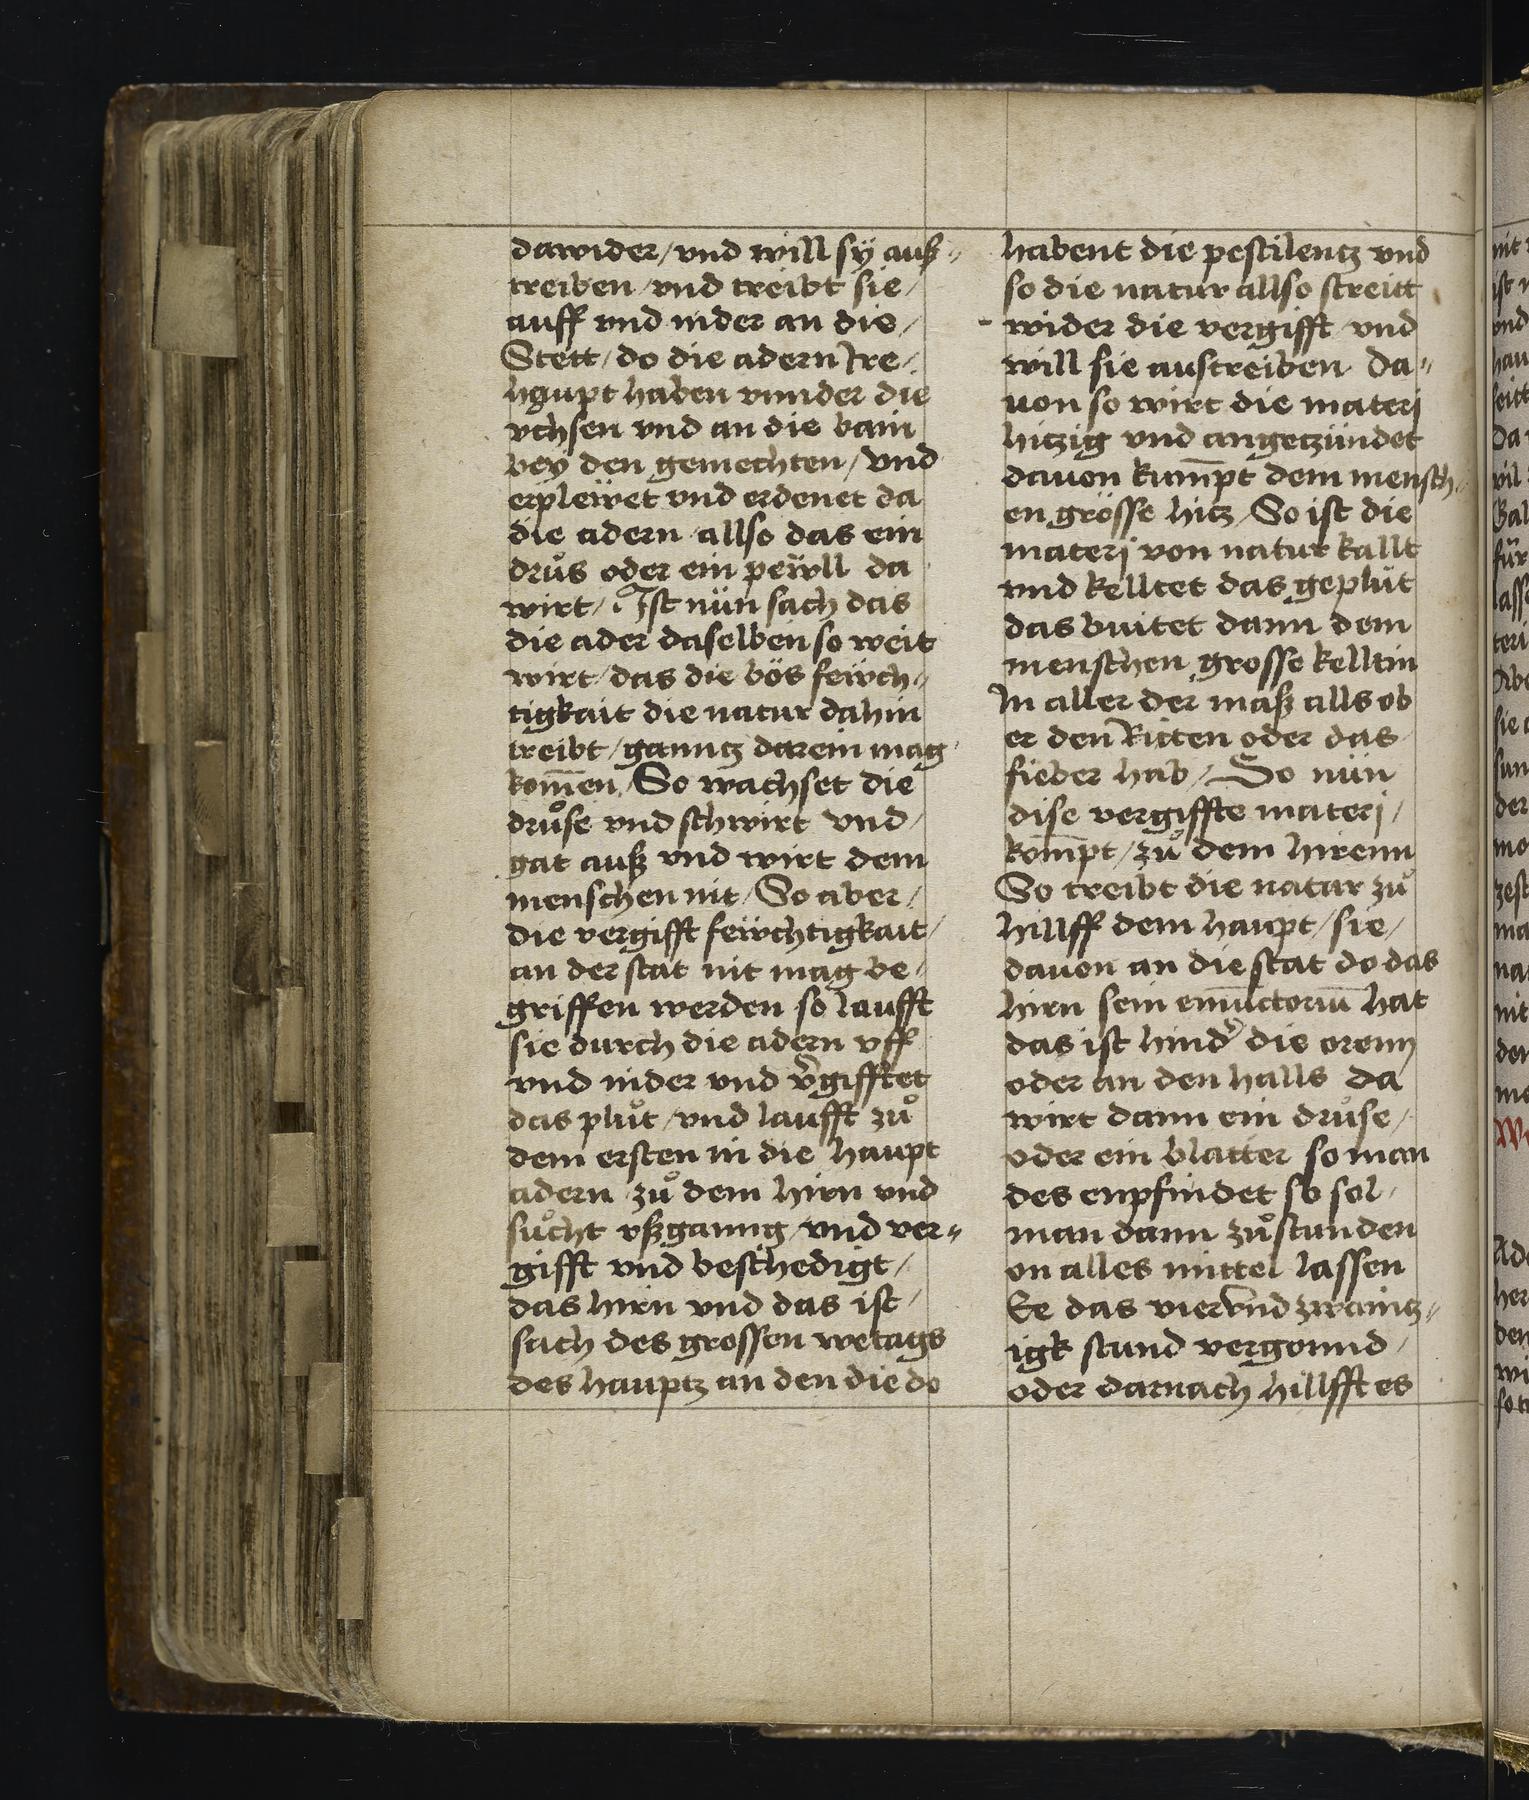 dawider / vnd will sÿ auß⸗
treiben / vnd treibt sie /
auff vnd nider an die /
Stett / do die adern Ire /
haupt haben vnnder die
vchsen vnd an die bain
beÿ den gemechten / vnd
erpleẅet vnd erdenet da
die adern / allso das ein
druͦs oder ein peẅll da
wirt / Ist nün sach das
die ader daselben so weit
wirt / das die bös feẅch⸗
tigkait die natur dahin
treibt / ganntz darein mag
kom̄en / So wachset die
druͦse vnd schwirt vnd /
gat auß vnd wirt dem
menschen nit / So aber /
die vergifft feẅchtigkait /
an der stat nit mag be /
griffen werden so laufft
sie durch die adern vff
vnd nider vnd v̉gifftet
das pluͦt / vnd laufft zuͦ
dem ersten in die haupt
adern / zuͦ dem hirn vnd
suͦcht vßganng / vnd ver⸗
gifft vnd beschedigt /
das hirn vnd das ist /
sach des grossen wetags
des hauptz an den die do
habent die pestilentz vnd
so die natur allso streitt
wider die vergifft / vnd
will sie austreiben da⸗
uon so wirt die materj
hitzig vnd angetzündet
dauon kum̄pt dem mensch⸗
en grösse hitz / So ist die
materj von natur kallt
vnd kelltet das geplüt
das buitet dann dem
menschen grosse kelltin
In aller der maß alls ob
er den Ritten oder das
fieber hab / So nün
dise vergiffte materj /
kom̄pt / zuͦ dem hirenn
So treibt die natur zuͦ
hillff dem haupt / sie /
dauon an die stat do das
hirn sein emūctoriū hat
das ist hind̉ die orenn
oder an den halls da
wirt dann ein druͦse /
oder ein blatter so man
des enpfindet so sol /
man dann zuͦstunden
on alles mittel lassen
Ee das vier vnd zwaintz⸗
igk stund vergonnd /
oder darnach hillfft es